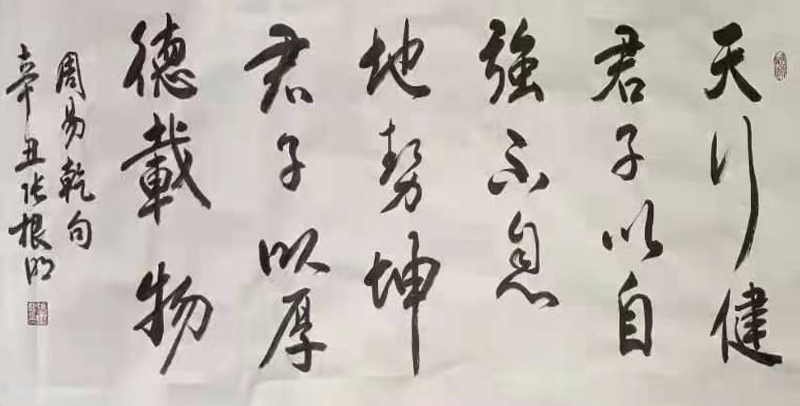 天行健
君子以自
強不息
地勢坤
君子以厚
德載物
周易乾句
辛丑张根明